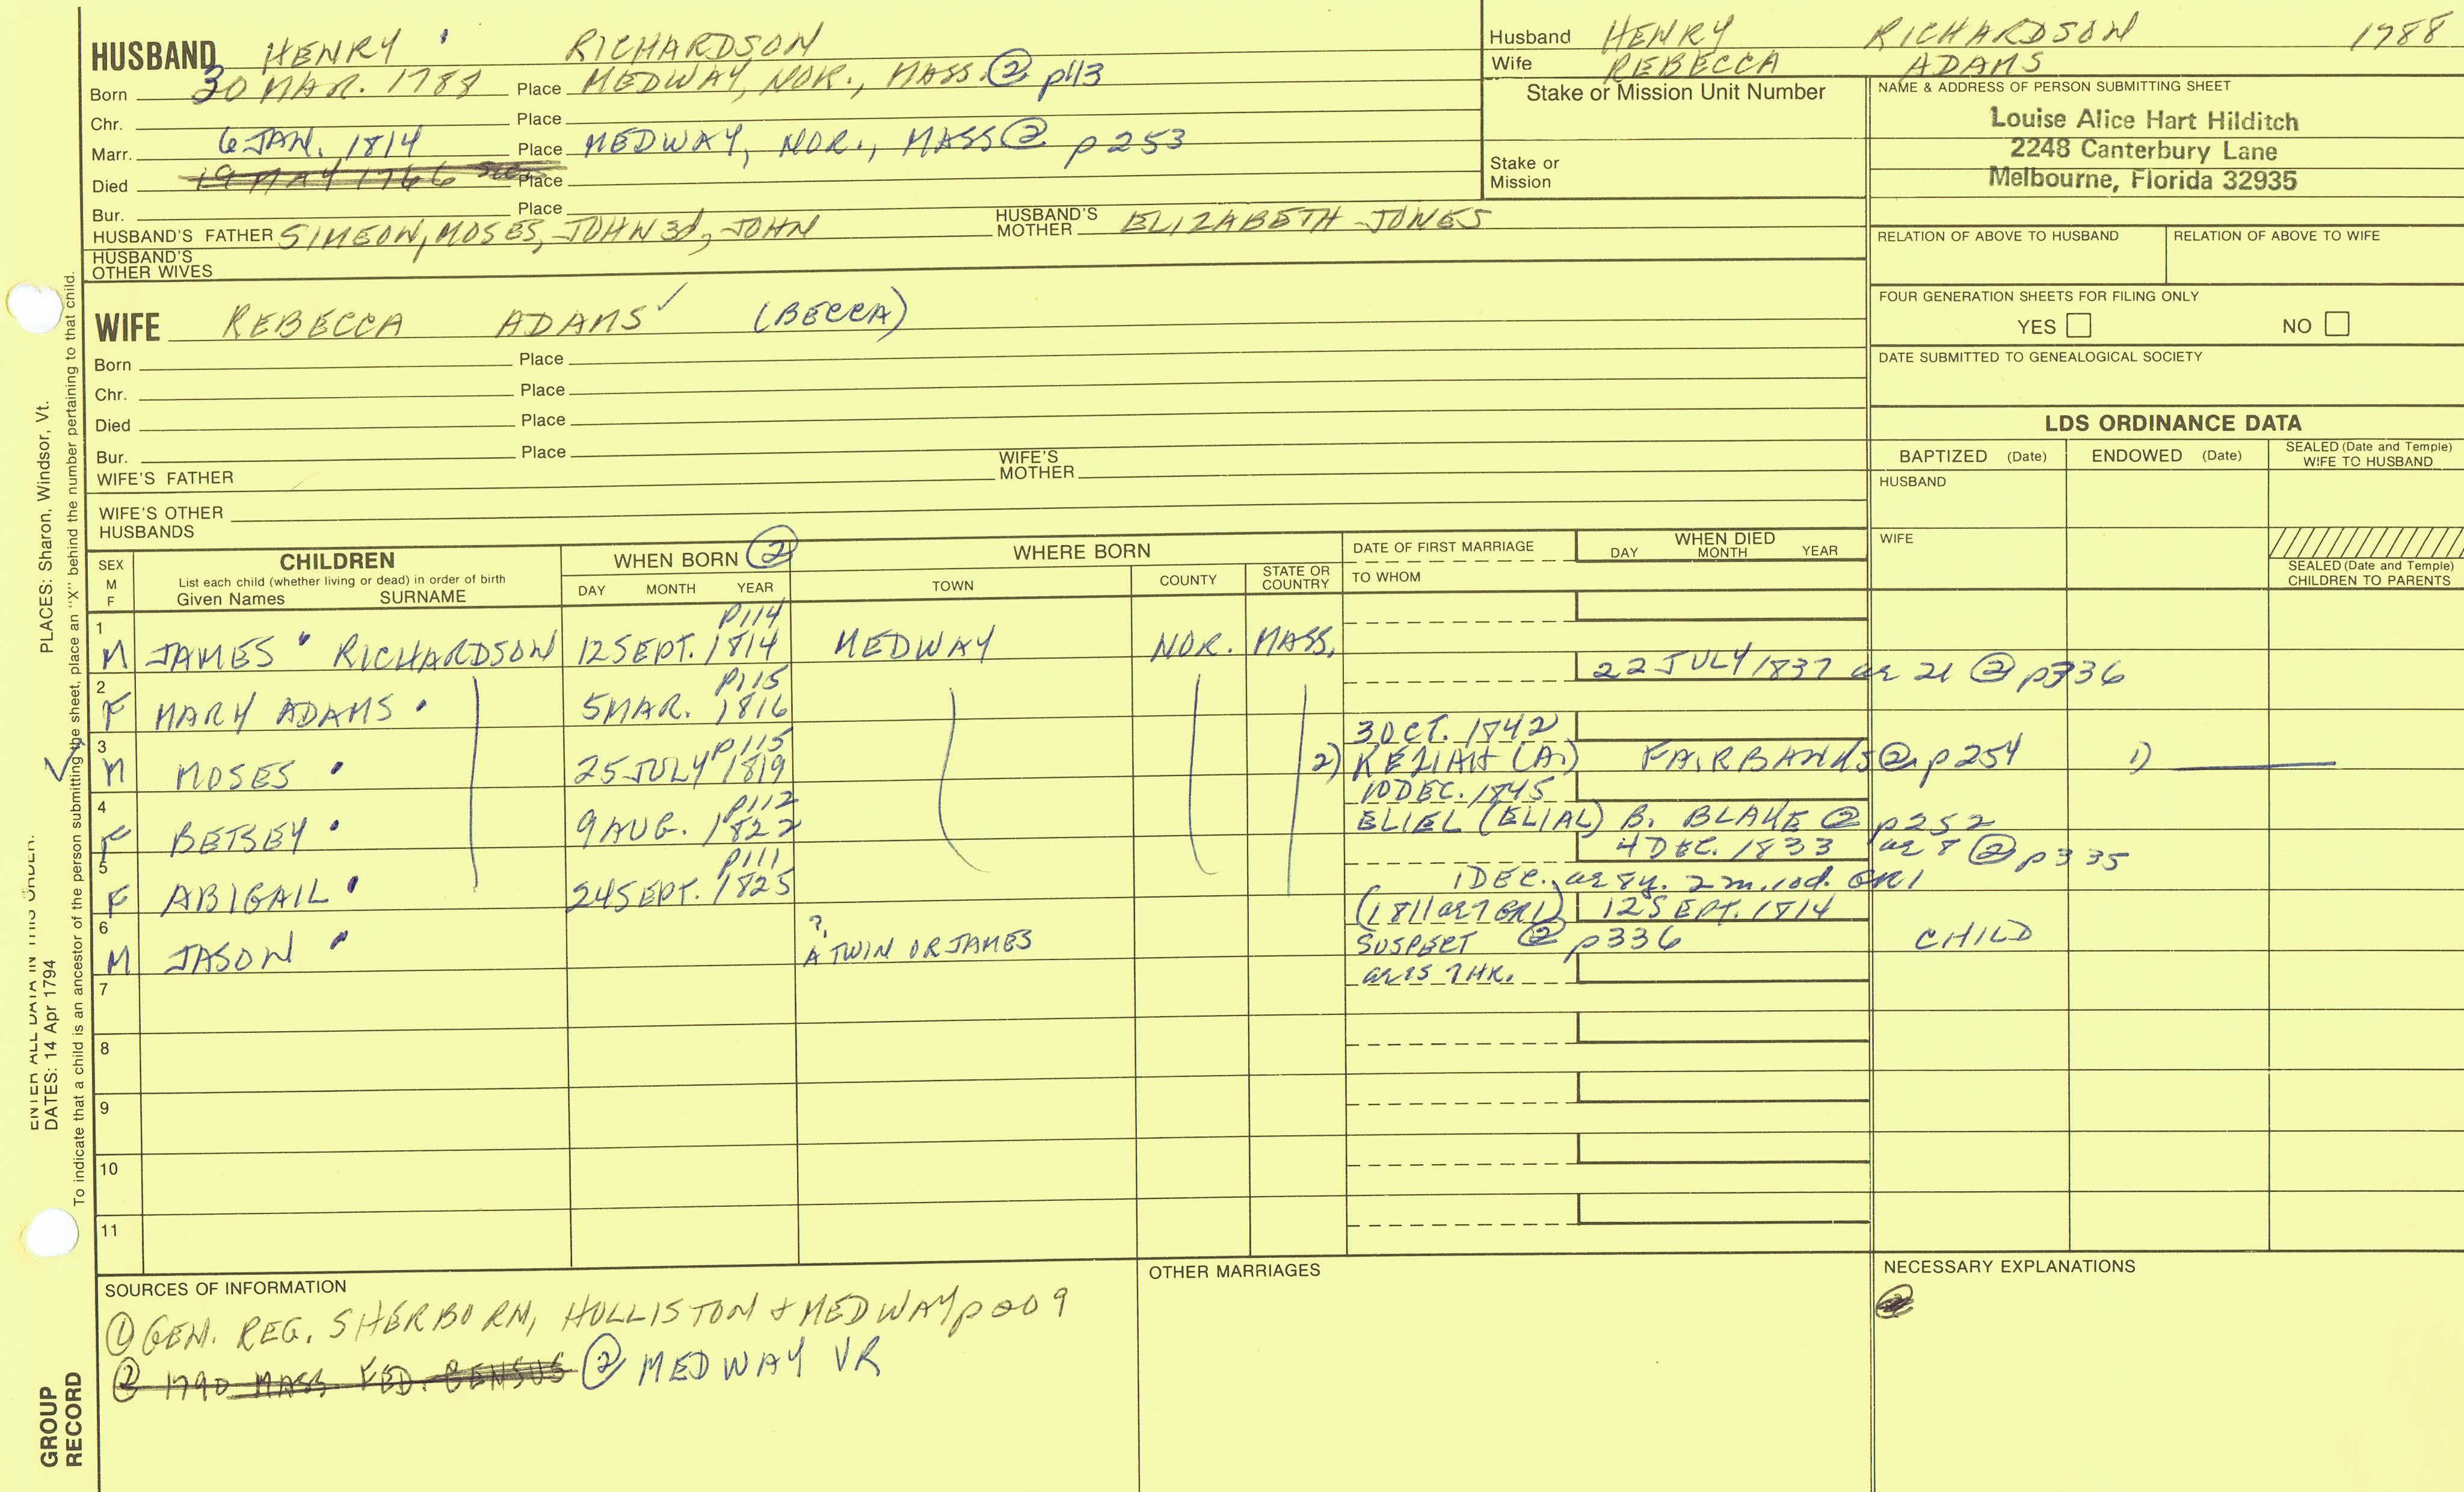 HUSBAND HENRY RICHARDSON
Born 30 MAR. 1788 Place MEDWAY, NOR., MASS. ② p113
Chr. Place
Marr. 6 JAN. 1814 Place MEDWAY, NOR., MASS ② p253
Died 19 MAY 1766 Place
Bur. Place
HUSBAND'S FATHER SIMEON, MOSES, JOHN 3d, JOHN HUSBAND'S MOTHER ELIZABETH JONES
HUSBAND'S OTHER WIVES
Husband HENRY RICHARDSON 1788
Wife REBECCA ADAMS
Stake or Mission Unit Number
Stake or Mission
NAME & ADDRESS OF PERSON SUBMITTING SHEET
Louise Alice Hart Hilditch
2248 Canterbury Lane
Melbourne, Florida 32935
RELATION OF ABOVE TO HUSBAND RELATION OF ABOVE TO WIFE
FOUR GENERATION SHEETS FOR FILING ONLY
YES NO
DATE SUBMITTED TO GENEALOGICAL SOCIETY
WIFE REBECCA ADAMS ✓ (BECCA)
Born Place
Chr. Place
Died Place
Bur. Place
WIFE'S FATHER WIFE'S MOTHER
WIFE'S OTHER HUSBANDS
LDS ORDINANCE DATA
BAPTIZED (Date) ENDOWED (Date) SEALED (Date and Temple) WIFE TO HUSBAND
HUSBAND
WIFE
SEALED (Date and Temple) CHILDREN TO PARENTS
SEX M F
CHILDREN
List each child (whether living or dead) in order of birth
Given Names SURNAME
WHEN BORN ②
DAY MONTH YEAR
WHERE BORN
TOWN COUNTY STATE OR COUNTRY
DATE OF FIRST MARRIAGE
TO WHOM
WHEN DIED
DAY MONTH YEAR
1 p114
M JAMES RICHARDSON 12 SEPT. 1814 MEDWAY NOR. MASS.
2 p115 22 JULY 1837 ae 21 ② p336
F MARY ADAMS 5 MAR. 1816
3 p115 3 OCT. 1842
M MOSES 25 JULY 1819 2) KEZIAH (A.) FAIRBANKS ② p254 1)
4 p112 10 DEC. 1845
F BETSEY 9 AUG. 1822 ELIEL (ELIAL) B. BLAKE ② p252
5 p111 4 DEC. 1833 ae 8 ② p335
F ABIGAIL 24 SEPT. 1825 1 DEC. ae 8y. 2m. 10d. GR1
6 (1811 ae 7 GR1) 12 SEPT. 1814
M JASON ? A TWIN OR JAMES SUSPECT ② p336 CHILD
7 ae 15 7 HR.
8
9
10
11
SOURCES OF INFORMATION
① GEN. REG. SHERBORN, HOLLISTON & MEDWAY p209
② 1790 MASS FED. CENSUS ② MEDWAY VR
OTHER MARRIAGES
NECESSARY EXPLANATIONS
PLACES: Sharon, Windsor, Vt.
ENTER ALL DATA IN THIS ORDER:
DATES: 14 Apr 1794
To indicate that a child is an ancestor of the person submitting the sheet, place an "X" behind the number pertaining to that child.
GROUP RECORD